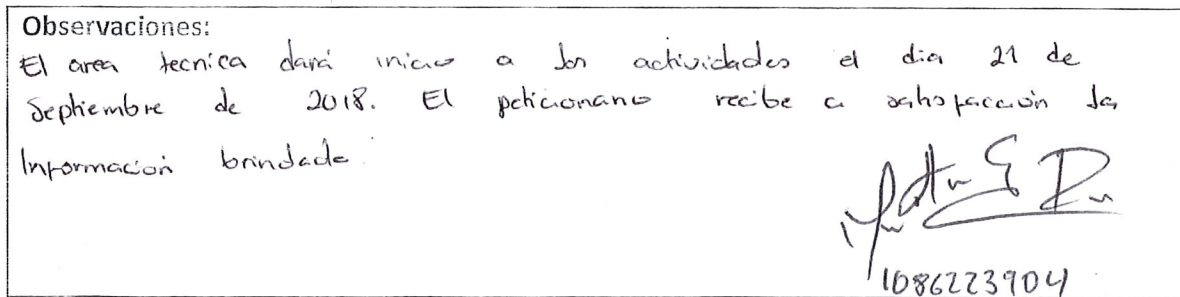 Observaciones:
El area tecnica dará inicio a las actividades el dia 21 de
Septiembre de 2018. El peticionario recibe a satisfacción la
Información brindada.
1086223904